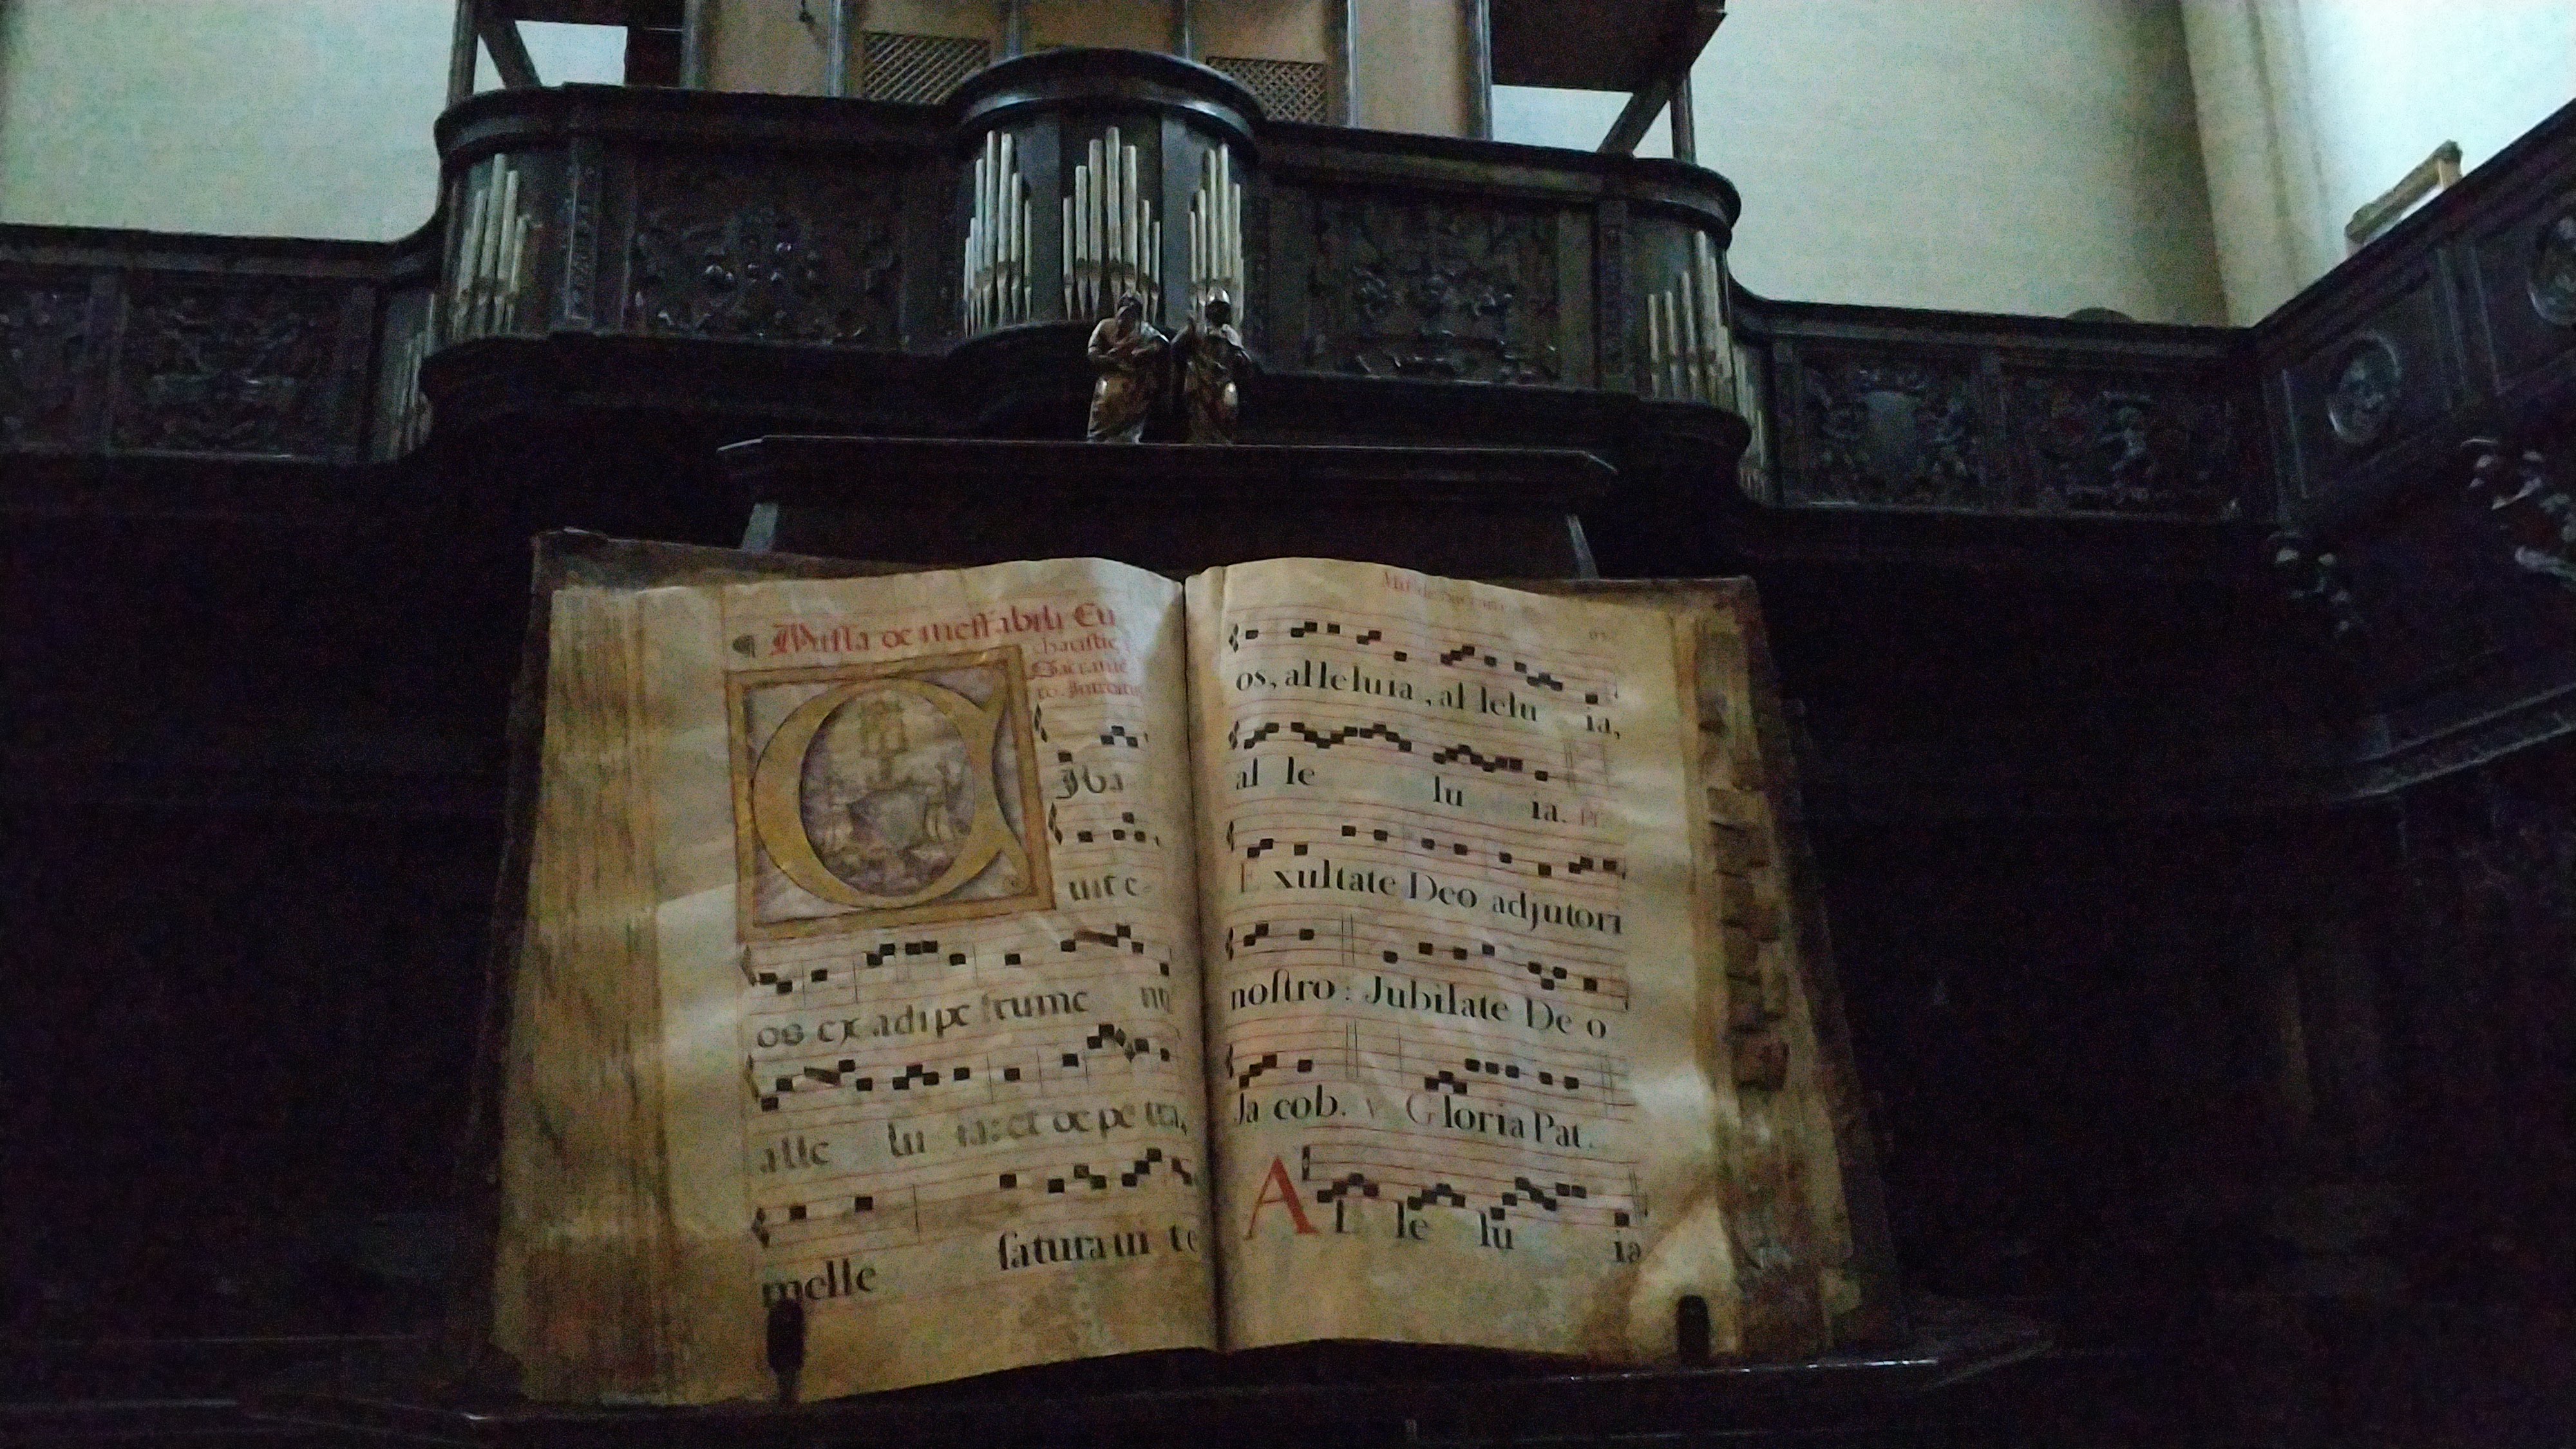 Missa de ineffabili Eu
charistie
Sacrame
to. Introitus
Iba
uit e
os ex adipe frume n
alle lu ia: et de pe tra,
melle saturaui te
os, alleluia, al lelu ia,
al le lu ia. Ps.
E xultate Deo adjutori
noſtro: Jubilate De o
Ja cob. v Gloria Pat.
AL le lu ia